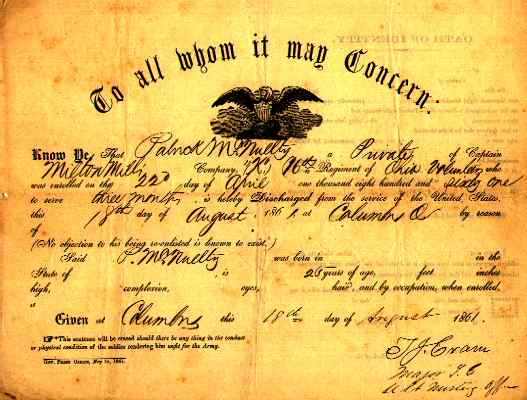 OATH OF IDENTITY.
To all whom it may Concern:
Know Ye, That Patrick McNultty a Private of Captain
Milton Mills Company, "K" 16th Regiment of Ohio Volunteers who
was enrolled on the 22d day of April one thousand eight hundred and sixty one
to serve three months is hereby Discharged from the service of the United States,
this 18th day of August 1861, at Columbus O by reason
of
(No objection to his being re-enlisted is known to exist.)
Said P. McNultty was born in in the
State of is 25 years of age, feet inches
high, complexion, eyes, hair, and by occupation, when enrolled,
a
Given at Columbus this 18th day of August 1861.
☞This sentence will be erased should there be any thing in the conduct
or physical condition of the soldier rendering him unfit for the Army.
Gov. Print. Office, May 14, 1861.
T. J. Cram
Major T. E
U S Musting Off